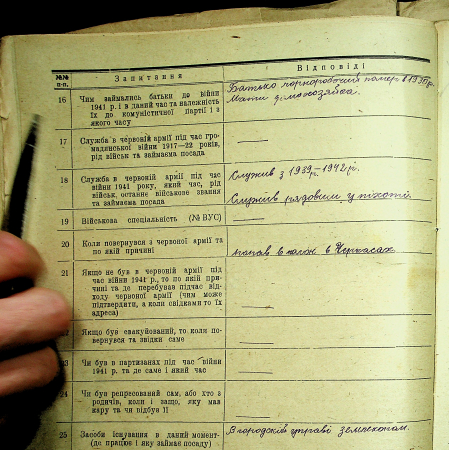 №№ п-п.
Запитання
Відповіді
16
Чим займались батьки до війни
1941 р. і в даний час та належність
їх до комуністичної партії і з
якого часу
Батько чорноробочий помер в 1930 р.
Мати домохозяйка.
17
Служба в червоній армії під час гро-
мадянської війни 1917—22 років,
рід військ та займаєма посада
—
18
Служба в червоній армії під час
війни 1941 року, який час, рід
військ, останнє військове звання
та займаєма посада
Служив з 1939 р.—1942 р.
Служив рядовим у піхоті.
19
Військова спеціальність (№ ВУС)
—
20
Коли повернувся з червоної армії та
по якій причині
попав в полон в Черкасах
21
Якщо не був в червоній армії під
час війни 1941 р., то по якій при-
чині та де перебував підчас від-
ходу червоної армії (чим може
підтвердити, а коли свідками то їх
адреса)
—
Якщо був евакуйований, то коли по-
вернувся та звідки саме
—
23
Чи був в партизанах під час війни
1941 р. та де саме і який час
—
24
Чи був репресований сам, або хто з
родичів, коли і защо, яку мав
кару та чи відбув її
—
25
Засоби існування в даний момент-
(де працює і яку займає посаду)
В городській управі землекопом.